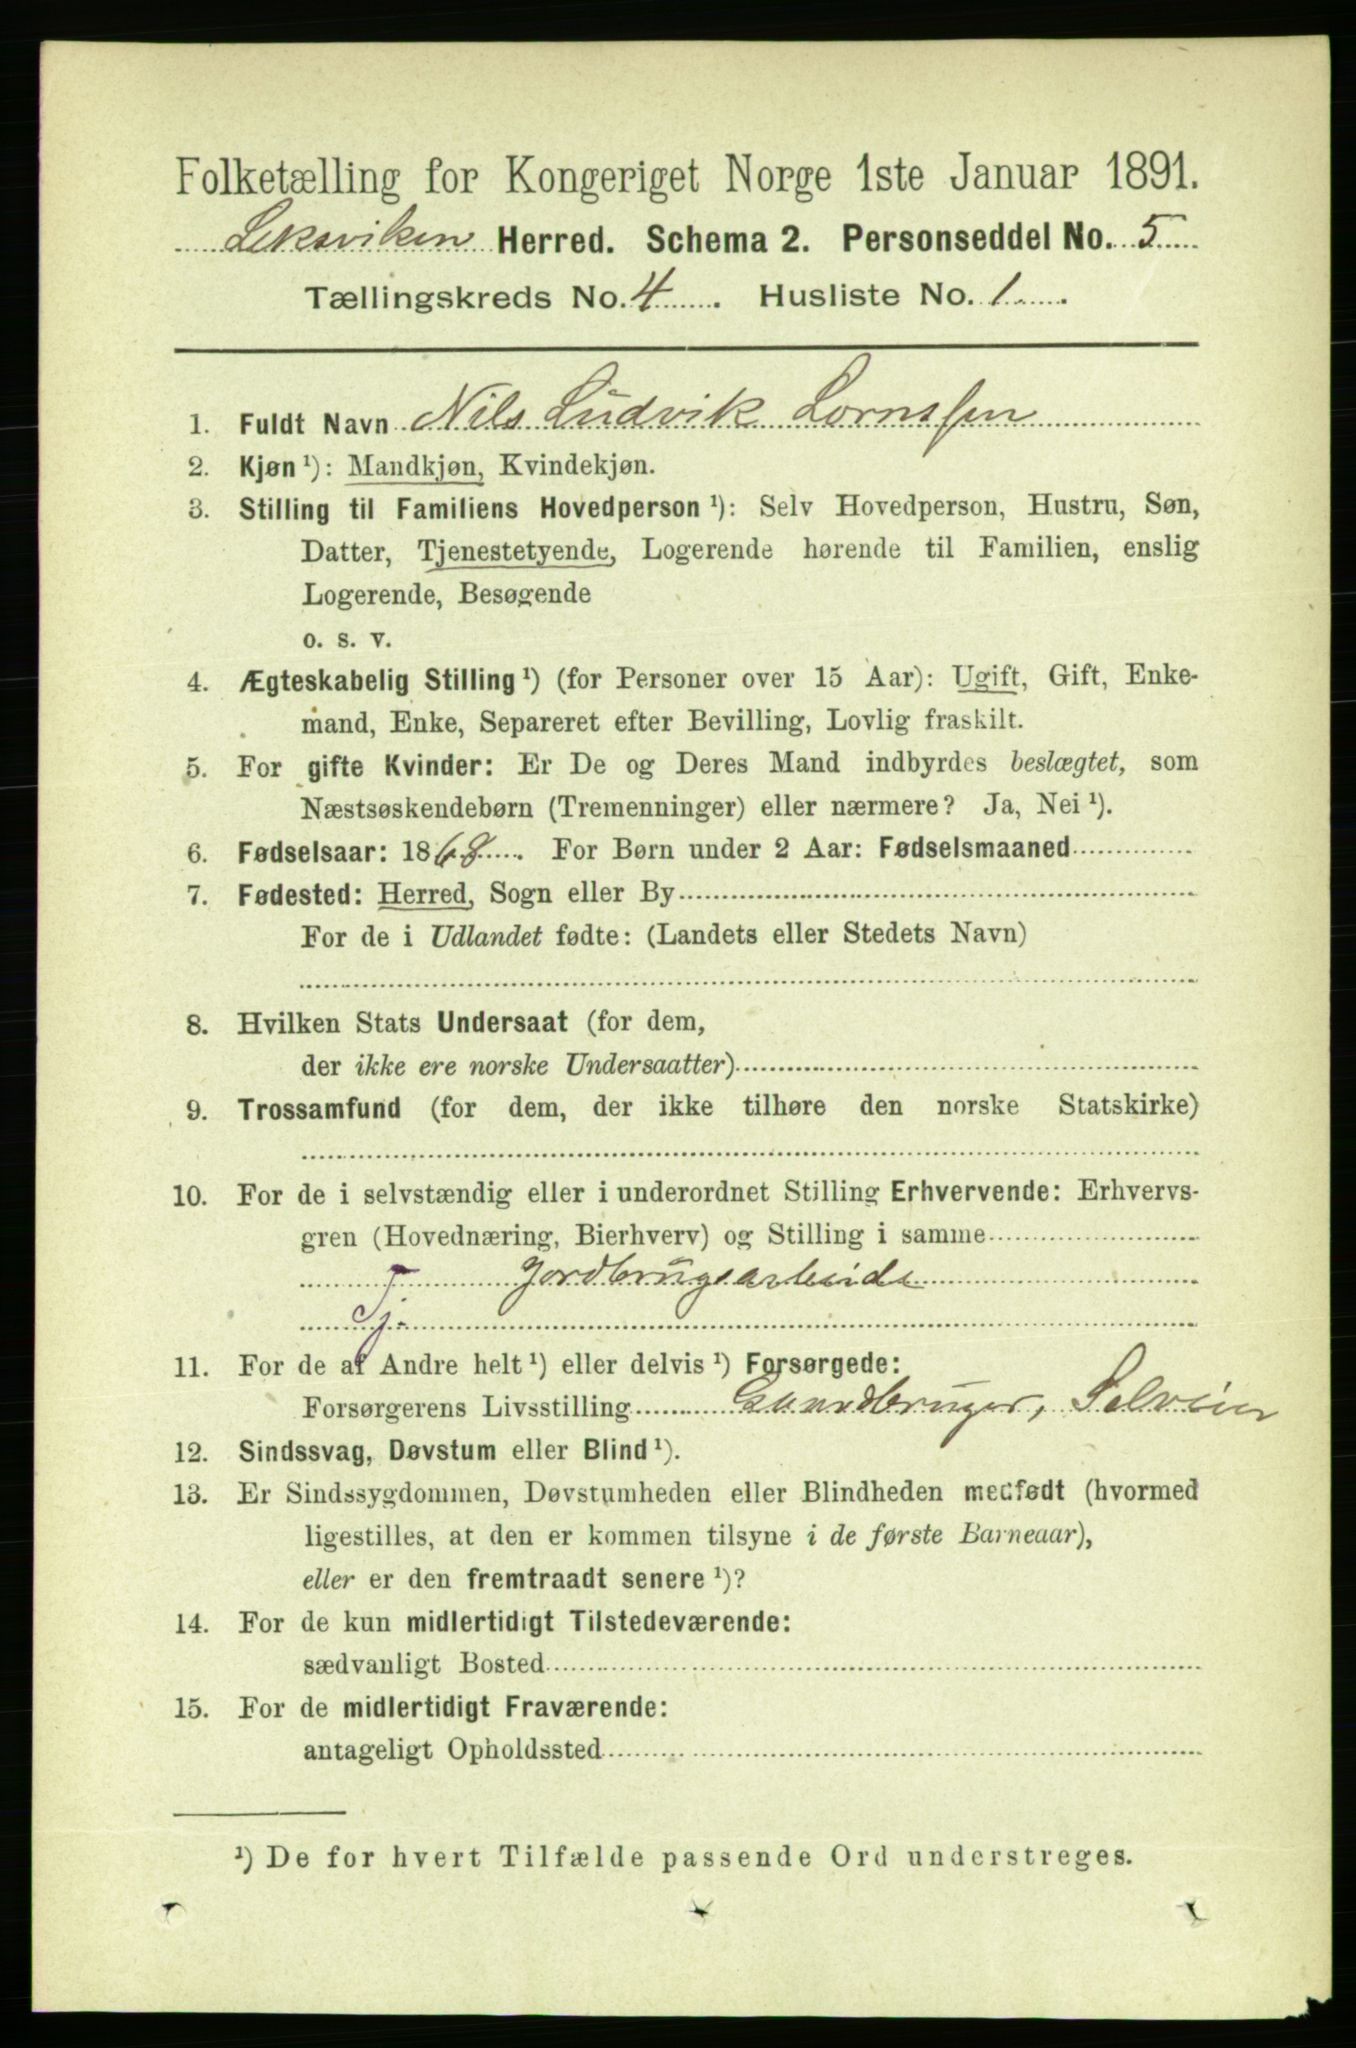 Folketælling for Kongeriget Norge 1ste Januar 1891.
Leksviken Herred. Schema 2. Personseddel No. 5
Tællingskreds No. 4. Husliste No. 1.
1. Fuldt Navn Nils Ludvik Lornssen
2. Kjøn ¹): Mandkjøn, Kvindekjøn.
3. Stilling til Familiens Hovedperson ¹): Selv Hovedperson, Hustru, Søn,
Datter, Tjenestetyende, Logerende hørende til Familien, enslig
Logerende, Besøgende
o. s. v.
4. Ægteskabelig Stilling ¹) (for Personer over 15 Aar): Ugift, Gift, Enke-
mand, Enke, Separeret efter Bevilling, Lovlig fraskilt.
5. For gifte Kvinder: Er De og Deres Mand indbyrdes beslægtet, som
Næstsøskendebørn (Tremenninger) eller nærmere? Ja, Nei ¹).
6. Fødselsaar: 1868. For Børn under 2 Aar: Fødselsmaaned
7. Fødested: Herred, Sogn eller By
For de i Udlandet fødte: (Landets eller Stedets Navn)
8. Hvilken Stats Undersaat (for dem,
der ikke ere norske Undersaatter)
9. Trossamfund (for dem, der ikke tilhøre den norske Statskirke)
10. For de i selvstændig eller i underordnet Stilling Erhvervende: Erhvervs-
gren (Hovednæring, Bierhverv) og Stilling i samme
Jordbrugsarbeide
Tj.
11. For de af Andre helt ¹) eller delvis ¹) Forsørgede:
Forsørgerens Livsstilling Gaardbruger, Selveier
12. Sindssvag, Døvstum eller Blind ¹).
13. Er Sindssygdommen, Døvstumheden eller Blindheden medfødt (hvormed
ligestilles, at den er kommen tilsyne i de første Barneaar),
eller er den fremtraadt senere ¹)?
14. For de kun midlertidigt Tilstedeværende:
sædvanligt Bosted
15. For de midlertidigt Fraværende:
antageligt Opholdssted
¹) De for hvert Tilfælde passende Ord understreges.